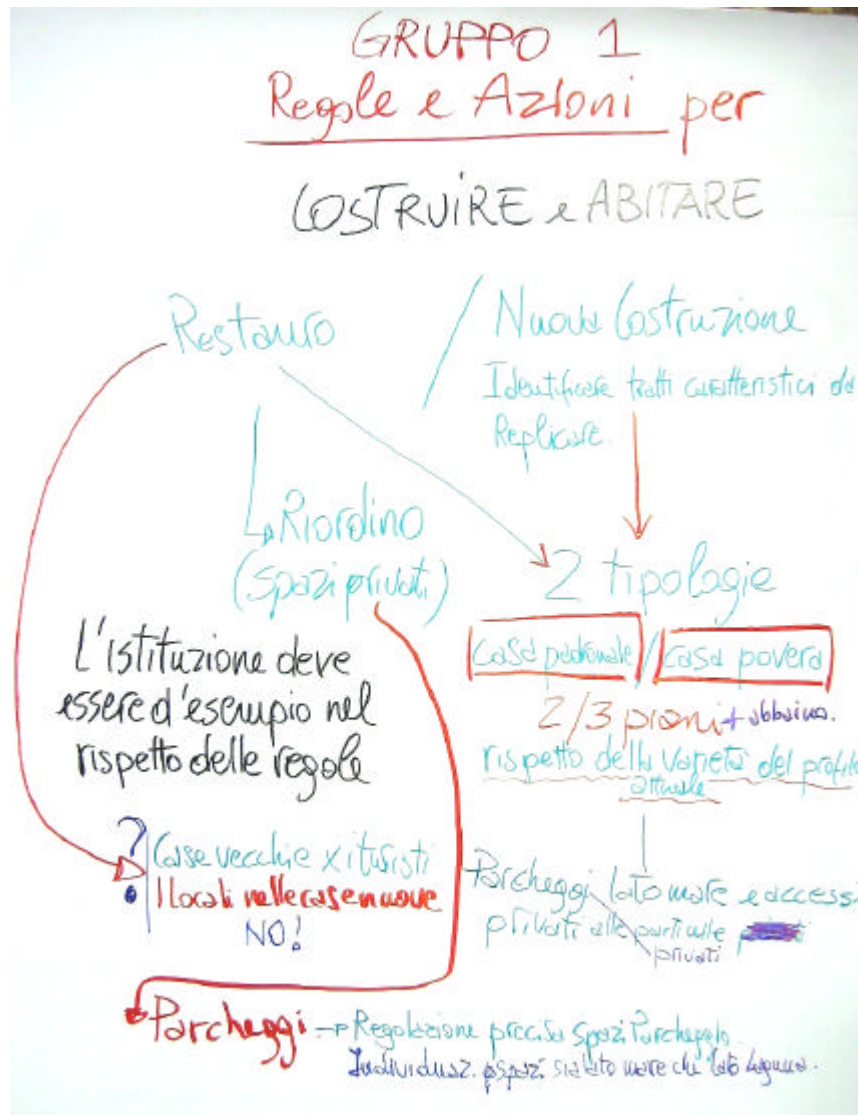 GRUPPO 1
Regole e Azioni per
COSTRUIRE e ABITARE
Restauro
/ Nuova Costruzione
Identificare tratti caratteristici da
Replicare.
Riordino
(spazi privati)
2 tipologie
casa padronale / casa povera
2/3 piani + abbaino.
rispetto della varietà del profilo
attuale
L'istituzione deve
essere d'esempio nel
rispetto delle regole
?
Case vecchie x i turisti
I locali nelle case nuove
NO!
Parcheggi lato mare e access
privati alle particelle
privati
Parcheggi → Regolazione precisa spazi Parcheggio.
Individuaz. spazi sia lato mare che lato laguna.